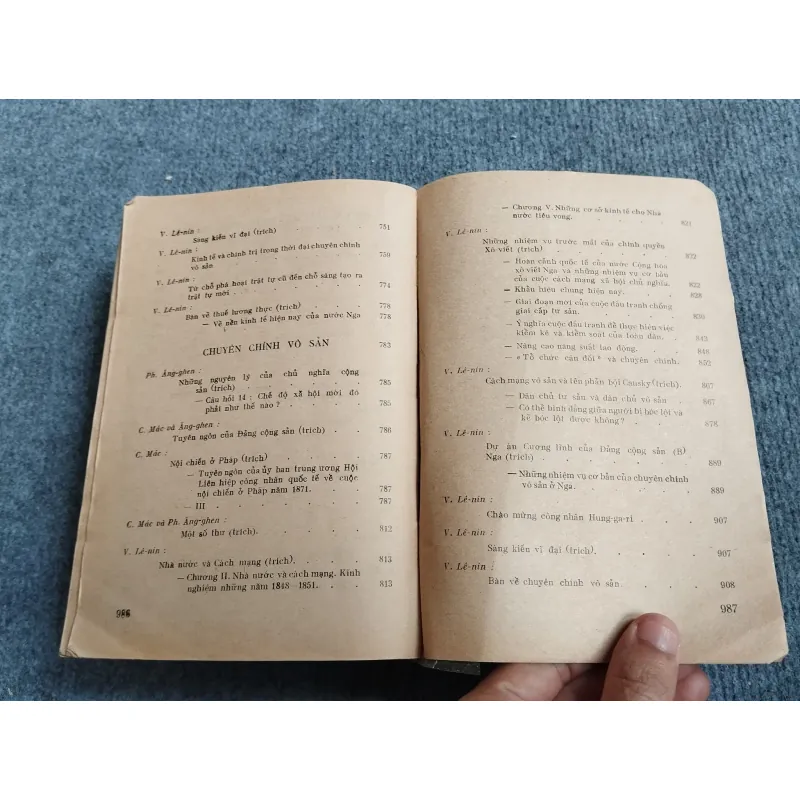 V. Lê-nin :
Sáng kiến vĩ đại (trích) 751
V. Lê-nin :
Kinh tế và chính trị trong thời đại chuyên chính
vô sản 759
V. Lê-nin :
Từ chỗ phá hoại trật tự cũ đến chỗ sáng tạo ra
trật tự mới 774
V. Lê-nin :
Bàn về thuế lương thực (trích) 778
— Về nền kinh tế hiện nay của nước Nga 778
CHUYÊN CHÍNH VÔ SẢN 783
Ph. Ăng-ghen :
Những nguyên lý của chủ nghĩa cộng
sản (trích) 785
— Câu hỏi 14 : Chế độ xã hội mới đó
phải như thế nào ? 785
C. Mác và Ăng-ghen :
Tuyên ngôn của Đảng cộng sản (trích) 786
C. Mác :
Nội chiến ở Pháp (trích) 787
— Tuyên ngôn của ủy ban trung ương Hội
Liên hiệp công nhân quốc tế về cuộc
nội chiến ở Pháp năm 1871. 787
— III 787
C. Mác và Ph. Ăng-ghen :
Một số thư (trích). 812
V. Lê-nin :
Nhà nước và Cách mạng (trích). 813
— Chương II. Nhà nước và cách mạng. Kinh
nghiệm những năm 1848—1851. 813
986
— Chương V. Những cơ sở kinh tế cho Nhà
nước tiêu vong. 821
V. Lê-nin :
Những nhiệm vụ trước mắt của chính quyền
Xô-viết (trích) 832
— Hoàn cảnh quốc tế của nước Cộng hòa
xô-viết Nga và những nhiệm vụ cơ bản
của cuộc cách mạng xã hội chủ nghĩa. 832
— Khẩu hiệu chung hiện nay. 838
— Giai đoạn mới của cuộc đấu tranh chống
giai cấp tư sản. 839
— Ý nghĩa cuộc đấu tranh để thực hiện việc
kiểm kê và kiểm soát của toàn dân. 843
— Nâng cao năng suất lao động. 848
— « Tổ chức cân đối » và chuyên chính. 852
V. Lê-nin :
Cách mạng vô sản và tên phản bội Causky (trích). 867
— Dân chủ tư sản và dân chủ vô sản 867
— Có thể bình đẳng giữa người bị bóc lột và
kẻ bóc lột được không ? 876
V. Lê-nin :
Dự án Cương lĩnh của Đảng cộng sản (B)
Nga (trích) 889
— Những nhiệm vụ cơ bản của chuyên chính
vô sản ở Nga. 889
V. Lê-nin :
Chào mừng công nhân Hung-ga-ri 907
V. Lê-nin :
Sáng kiến vĩ đại (trích). 907
V. Lê-nin :
Bàn về chuyên chính vô sản. 908
987